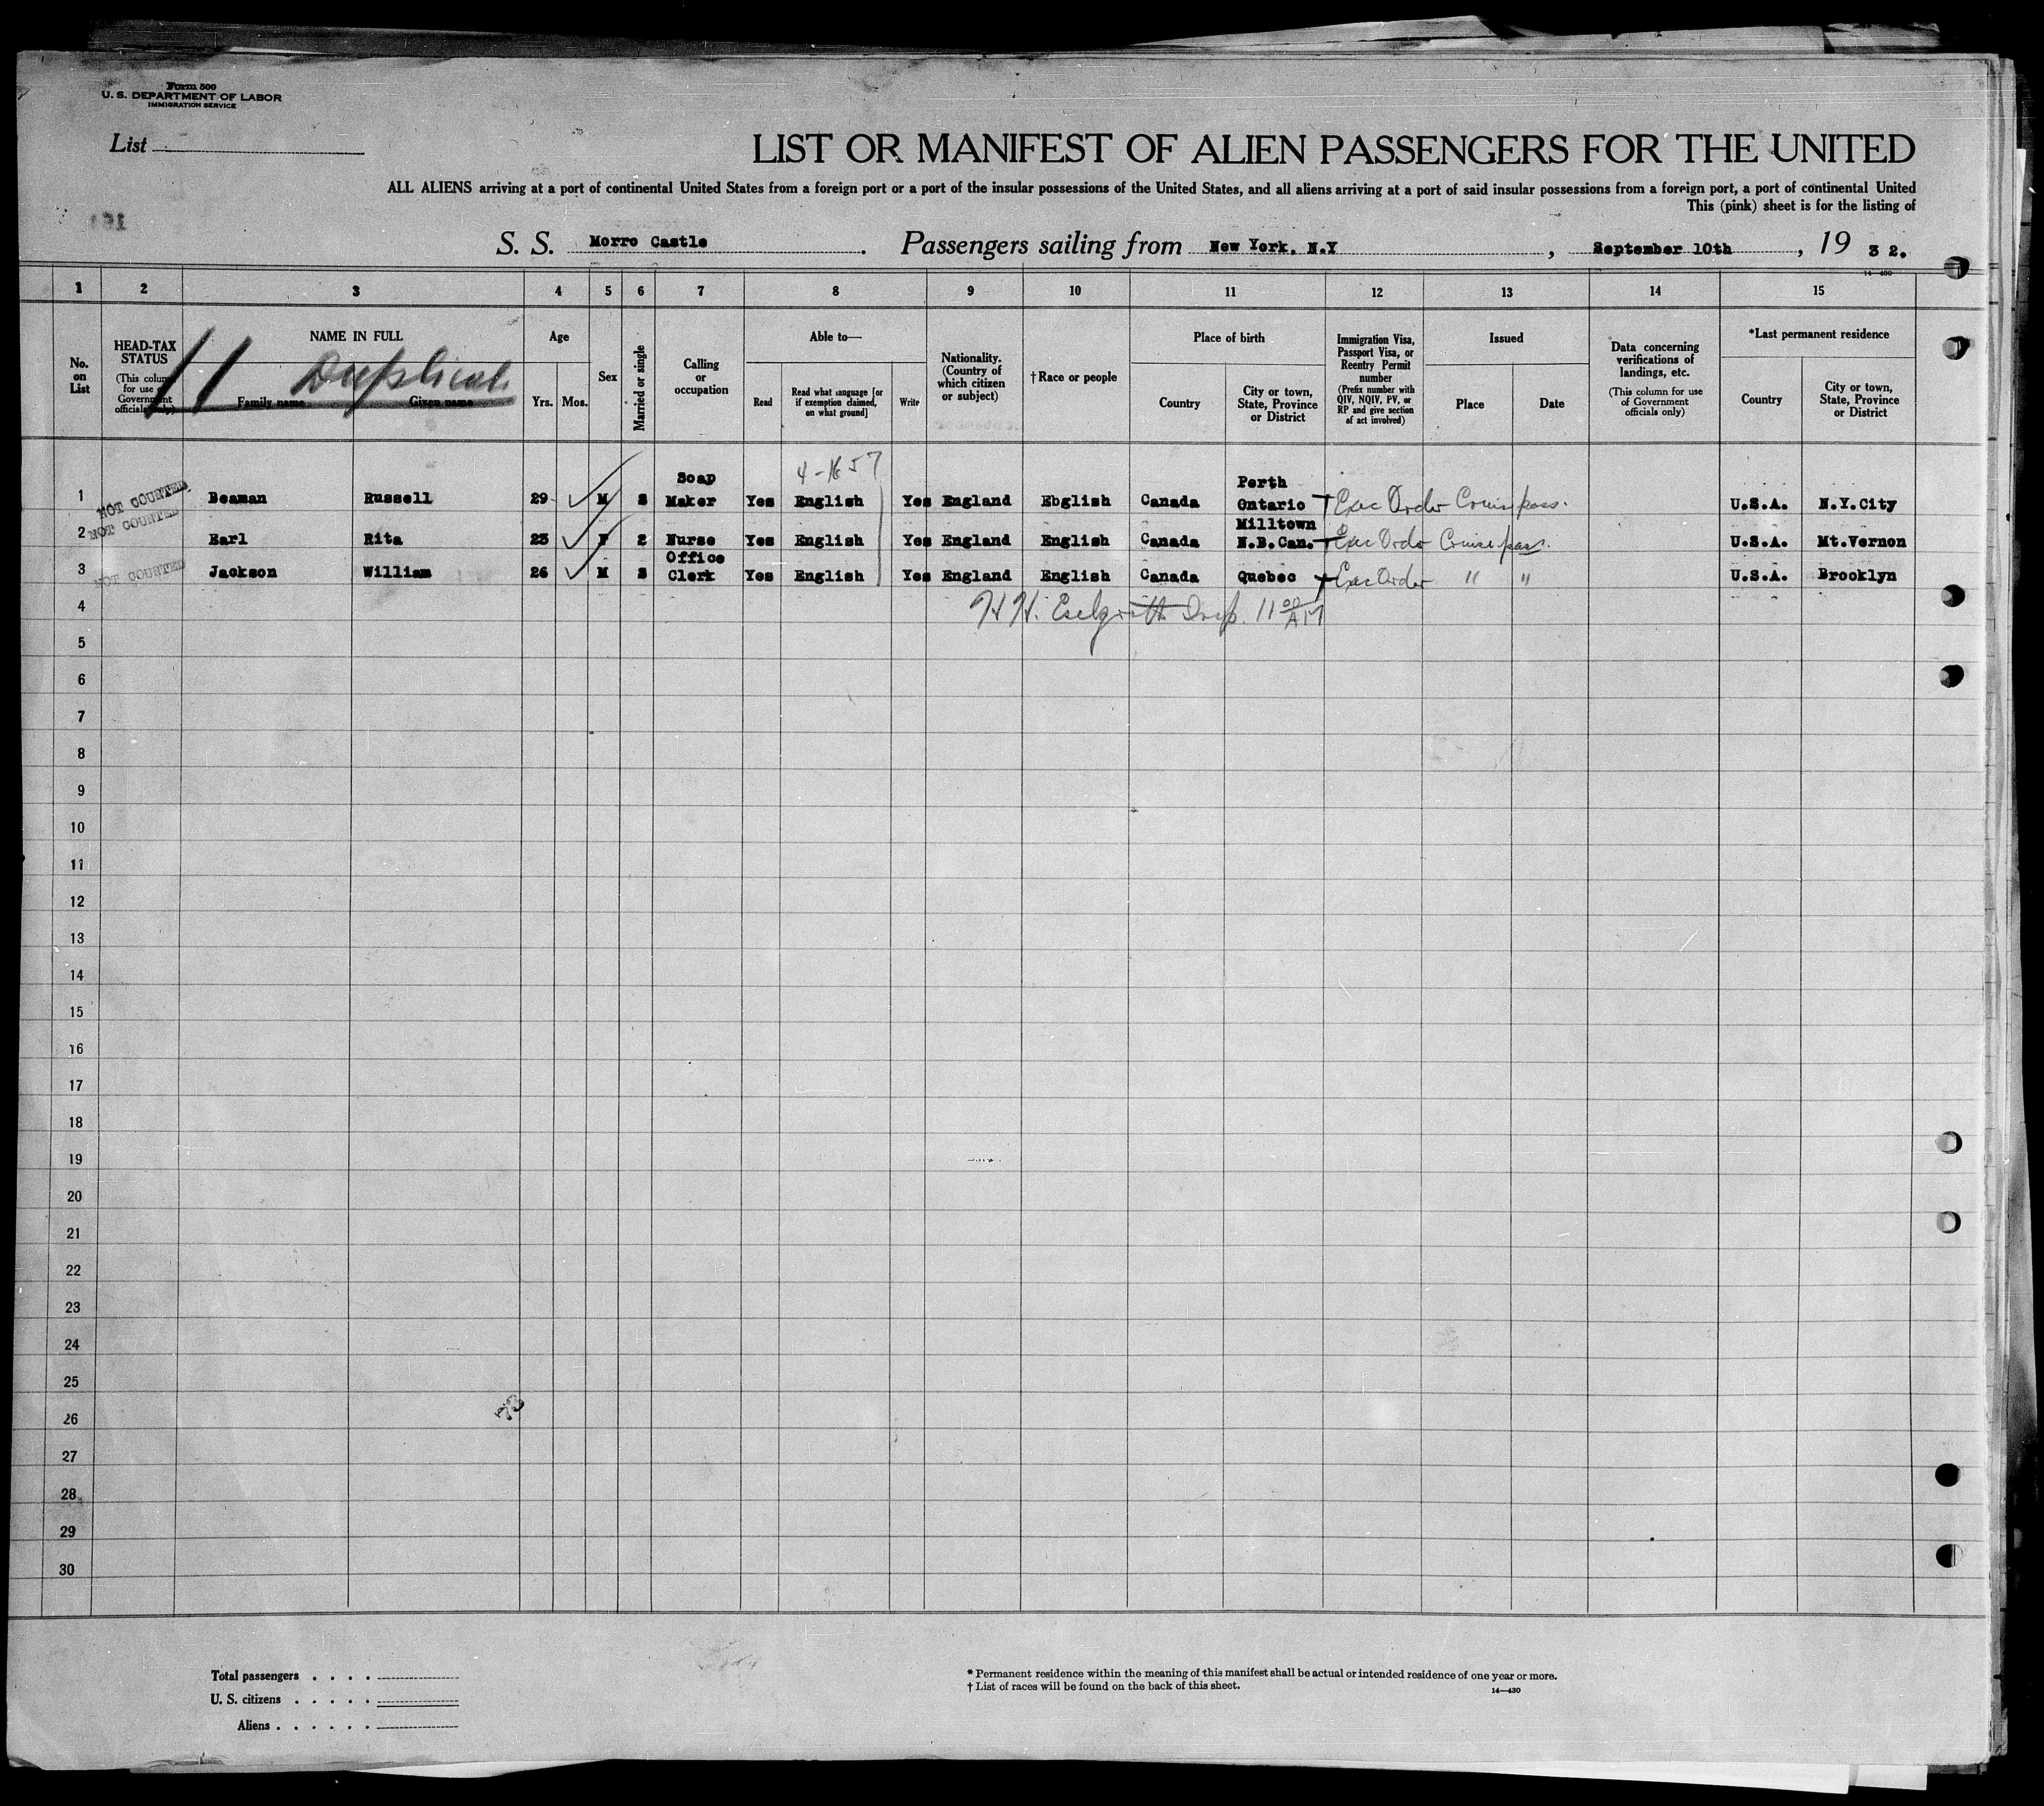 Form 500
U. S. DEPARTMENT OF LABOR
IMMIGRATION SERVICE
List
LIST OR MANIFEST OF ALIEN PASSENGERS FOR THE UNITED
ALL ALIENS arriving at a port of continental United States from a foreign port or a port of the insular possessions of the United States, and all aliens arriving at a port of said insular possessions from a foreign port, a port of continental United
This (pink) sheet is for the listing of
S. S. Morro Castle. Passengers sailing from New York, N.Y, September 10th, 19 32.
14—430
1 2 3 4 5 6 7 8 9 10 11 12 13 14 15
No. on List
HEAD-TAX STATUS
(This column for use of Government officials only)
11 Duplicate
NAME IN FULL
Family name Given name
Age
Yrs. Mos.
Sex
Married or single
Calling or occupation
Able to—
Read
Read what language [or if exemption claimed, on what ground]
Write
Nationality. (Country of which citizen or subject)
†Race or people
Place of birth
Country
City or town, State, Province or District
Immigration Visa, Passport Visa, or Reentry Permit number
(Prefix number with QIV, NQIV, PV, or RP and give section of act involved)
Issued
Place Date
Data concerning verifications of landings, etc.
(This column for use of Government officials only)
*Last permanent residence
Country
City or town, State, Province or District
4-1657
1 NOT COUNTED Beaman Russell 29 M S Soap Maker Yes English Yes England Ebglish Canada Perth Ontario Exec Order Cruise pass. U.S.A. N.Y.City
2 NOT COUNTED Earl Rita 23 F 2 Nurse Yes English Yes England English Canada Milltown N.B.Can. Exec Order Cruise pass. U.S.A. Mt.Vernon
3 NOT COUNTED Jackson William 26 M S Office Clerk Yes English Yes England English Canada Quebec Exec Order " " U.S.A. Brooklyn
4 H. H. Insp. 11 00 AM
5
6
7
8
9
10
11
12
13
14
15
16
17
18
19
20
21
22
23
24
25
26
27
28
29
30
Total passengers . . . .
U. S. citizens . . . . .
Aliens . . . . . .
* Permanent residence within the meaning of this manifest shall be actual or intended residence of one year or more.
† List of races will be found on the back of this sheet.
14—430